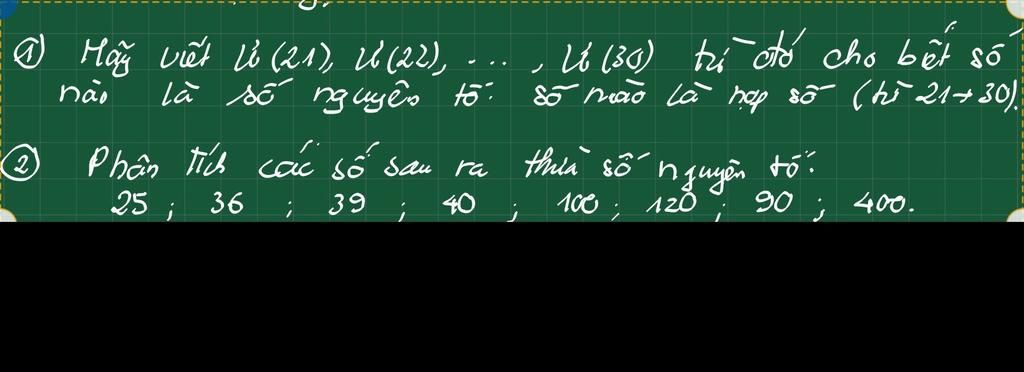 ① Hãy viết Ư(21), Ư(22), ..., Ư(30) từ đó cho biết số
nào là số nguyên tố. số nào là hợp số (từ 21→30).
② Phân tích các số sau ra thừa số nguyên tố:
25 ; 36 ; 39 ; 40 ; 100 ; 120 ; 90 ; 400.